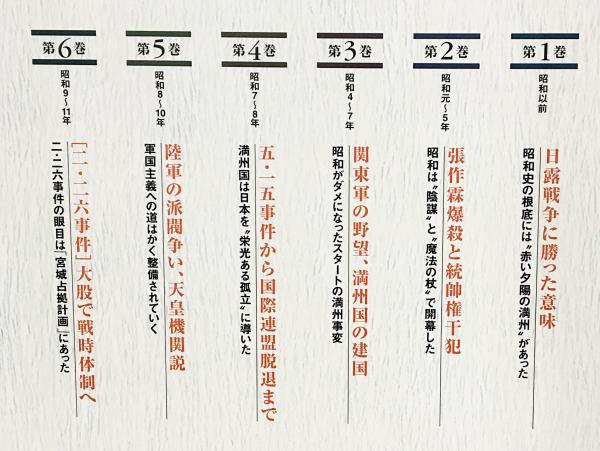 第1巻
昭和以前
日露戦争に勝った意味
昭和史の根底には〝赤い夕陽の満州〟があった
第2巻
昭和元〜5年
張作霖爆殺と統帥権干犯
昭和は〝陰謀〟と〝魔法の杖〟で開幕した
第3巻
昭和4〜7年
関東軍の野望、満州国の建国
昭和がダメになったスタートの満州事変
第4巻
昭和7〜8年
五・一五事件から国際連盟脱退まで
満州国は日本を〝栄光ある孤立〟に導いた
第5巻
昭和8〜10年
陸軍の派閥争い、天皇機関説
軍国主義への道はかく整備されていく
第6巻
昭和9〜11年
［二・二六事件］大股で戦時体制へ
二・二六事件の眼目は「宮城占拠計画」にあった